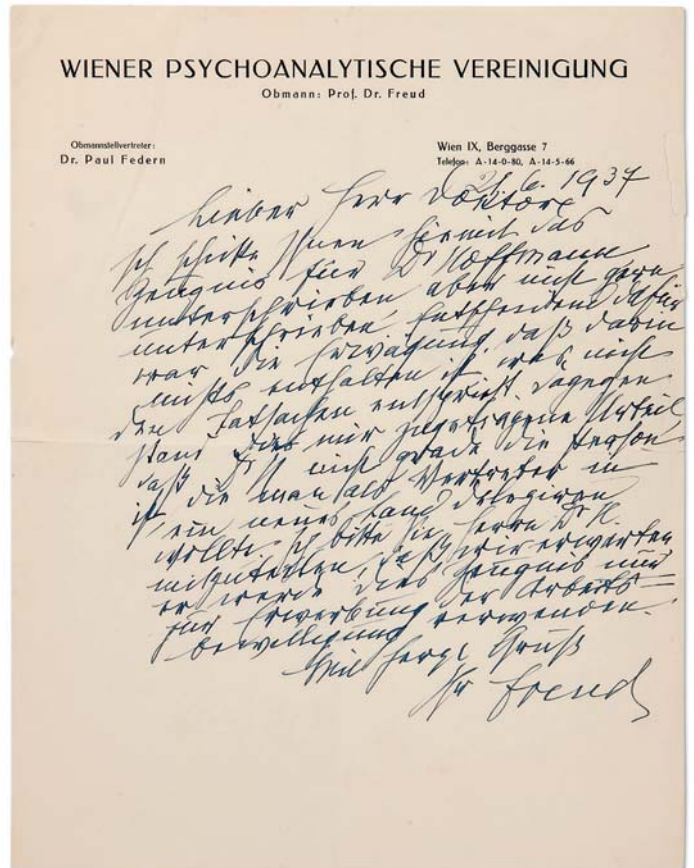 WIENER PSYCHOANALYTISCHE VEREINIGUNG
Obmann: Prof. Dr. Freud
Obmannstellvertreter:
Dr. Paul Federn
Wien IX, Berggasse 7
Telefon: A-14-0-80, A-14-5-66
21. 6. 1937
Lieber Herr Doktor
Ich schicke Ihnen hiemit das
Zeugnis für Dr Hoffmann
unterschrieben aber nicht gern
unterschrieben. Entscheidend dafür
war die Erwägung, daß darin
nichts enthalten ist, was nicht
den Tatsachen entspricht. Dagegen
stand das mir zugetragene Urteil
daß Dr H nicht grade die Person
ist, die man als Vertreter in
ein neues Land delegiren
wollte. Ich bitte Sie, Herrn Dr H.
mitzuteilen, daß wir erwarten
er werde dies Zeugnis nur
zur Erwerbung der Arbeits-
bewilligung verwenden.
Mit herzl Gruß
Ihr Freud